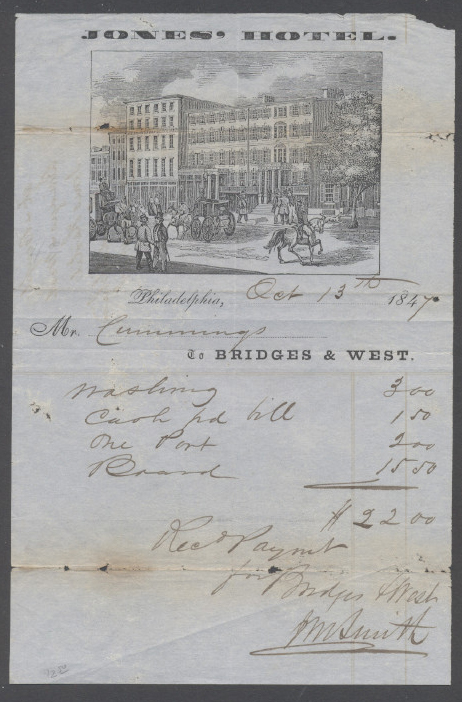 JONES' HOTEL.
Philadelphia, Oct 13th 1847
Mr. Cummings
To BRIDGES & WEST.
Washing 3 00
Cash pd bill 1 50
One Port 2 00
Board 15 50
$ 22 00
Recd Paymt
for Bridges & West
JM Smith